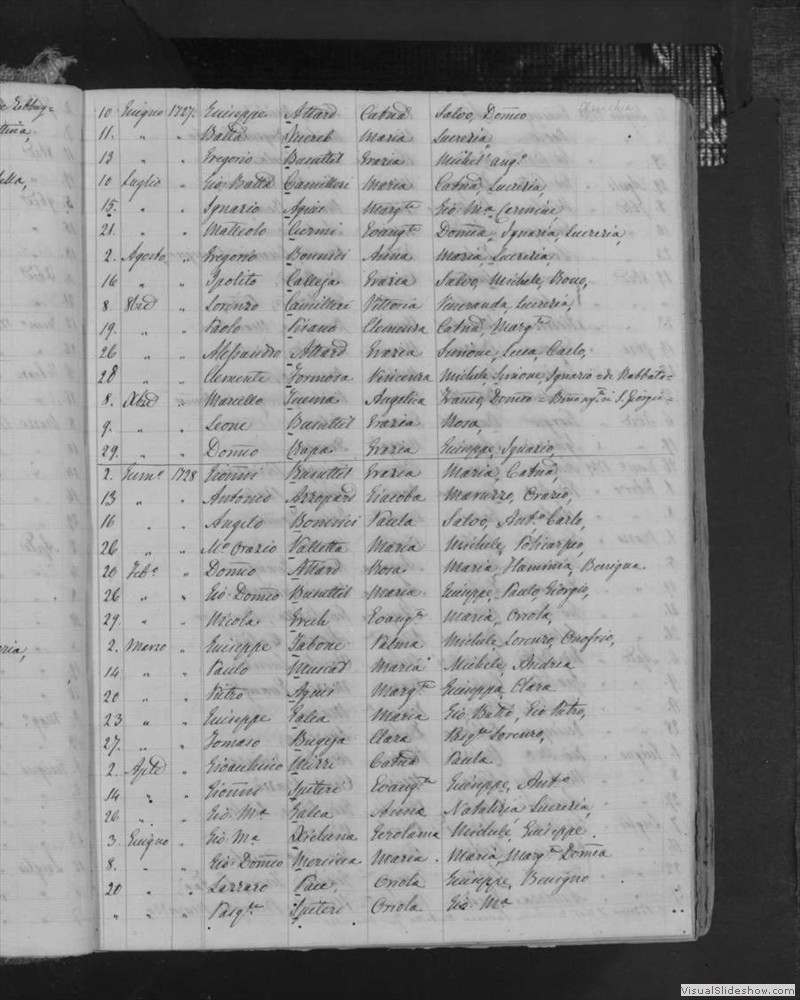 tina,
10 Giugno 1727. Giuseppe Attard Catnã Salvo, Domco
11. " " Batta Mereb Maria Lucrezia,
13 " " Gregorio Busuttil Grazia Michelango
10 Luglio " Gio Batta Camilleri Maria Catnã, Lucrezia,
15. " " Ignazio Agius Margta Gio Ma
21. " " Matteolo Ciormi Evangta Domca, Ignazia, Lucrezia,
2. Agosto " Gregorio Bonnici Anna Maria, Lucrezia,
16 " " Ipolito Calleja Grazia Salvo, Michele,
8 8bre " Lorenzo Camilleri Vittoria Veneranda, Lucrezia,
19. " " Paolo Pisano Clemenza Catnã, Margta
26 " " Alessandro Attard Grazia Simone, Luca, Carlo,
28 " " Clemente Formosa Vincenza Michele, Simone, Ignazio = di Rabbato =
8. Xbre " Marcello Angelica Domco = S. Giorgio =
9. " " Leone Busuttil Grazia Rosa,
29. " " Domco Rapa Grazia Giuseppe, Ignazio,
2. Genro 1728 Gioãnni Busuttil Grazia Maria, Catnã,
13 " " Antonio Azzopard Giacoba Maruzzo, Orazio,
16 " " Angelo Bonnici Paula Salvo, Anto Carlo,
26 " " Mro Orazio Valletta Maria Michele, Policarpo,
20 Febo " Domco Attard Rosa Maria, Flaminia, Benigna
26 " " Gio Domco Busuttil Maria Giuseppe, Paulo, Giorgio,
29. " " Nicola Grech Evangta Maria, Orsola,
2. Marzo " Giuseppe Tabone Palma Michele, Lorenzo, Onofrio,
14 " " Paulo Muscat Maria Michele, Andrea
20 " " Pietro Agius Margta Giuseppa, Clara
23 " " Giuseppe Galea Maria Gio. Batta, Gio Pietro,
27. " " Tomaso Bugeja Clara Pasqle Lorenzo,
2. Aple " Gioachino Mizzi Catnã Paula
14 " " Gioãnni Spiteri Evangta Giuseppe, Anto
26 " " Gio. Ma Galea Anna Natalizia, Lucrezia,
3. Giugno " Gio. Ma Xicluna Gerolama Michele, Giuseppe.
8. " " Gio. Domco Mercieca Maria Maria, Margta Domca
20 " " Lazzaro Pace, Orsola Giuseppe, Benigno
" " " Pasqle Spiteri Orsola Gio. Ma
VisualSlideshow.com